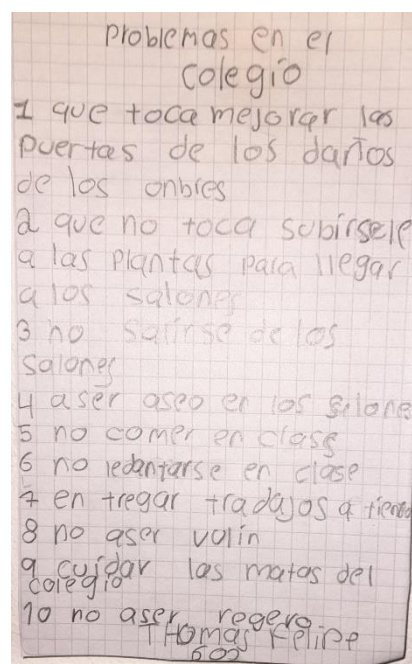 problemas en el
colegio
1 que toca mejorar las
puertas de los daños
de los onbres
2 que no toca subirsele
a las plantas para llegar
a los salones
3 no salirse de los
salones
4 aser aseo en los salones
5 no comer en class
6 no ledantarse en clase
7 en tregar tradajos a tiempo
8 no aser vulin
9 cuidar las matas del
colegio
10 no aser regero
THomas Felipe
600